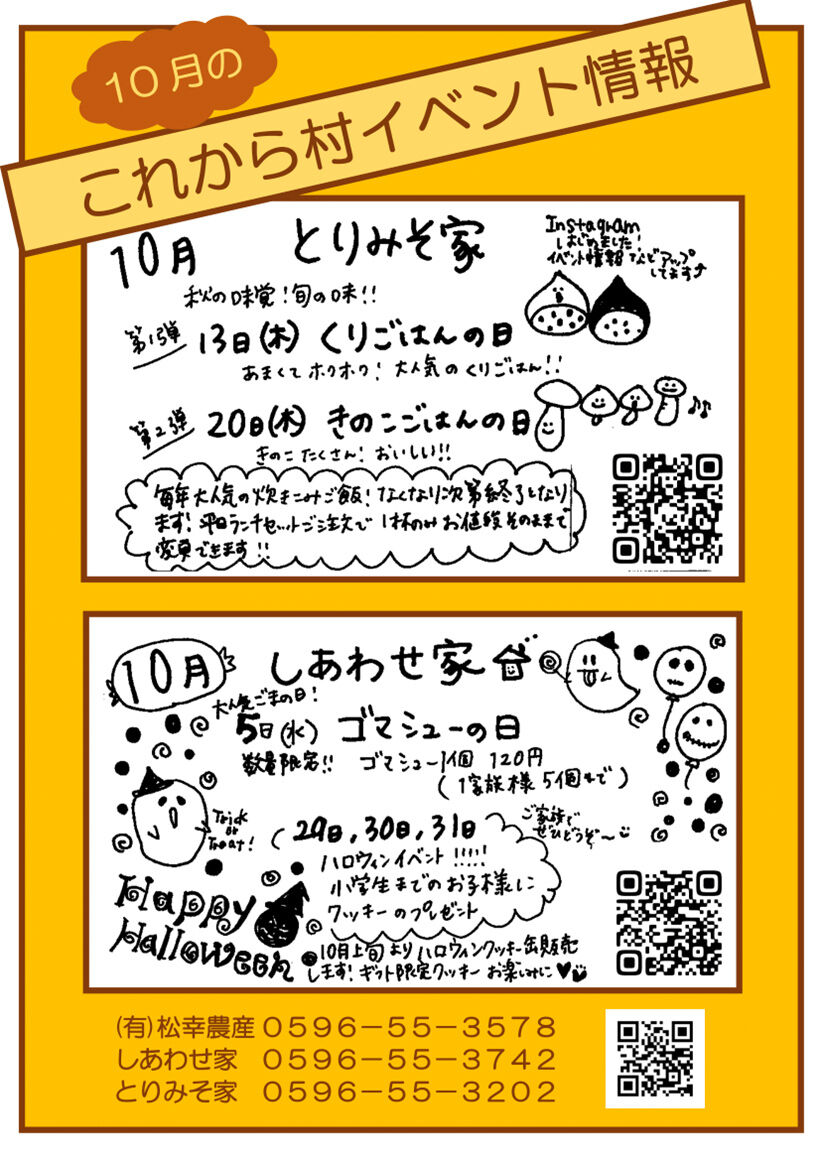 10月の
これから村イベント情報
10月
とりみそ家
Instagram
はじめました!
イベント情報などアップ
してます♪
秋の味覚!旬の味!!
第1弾 13日(木) くりごはんの日
あまくてホクホク! 大人気のくりごはん!!
第2弾 20日(木) きのこごはんの日
きのこたくさん! おいしい!!
毎年大人気の炊きこみご飯! なくなり次第終了となり
ます! 平日ランチセットご注文で 1杯のみお値段そのままで
変更できます!!
10月
しあわせ家
大人気ごまの日!
5日(水) ゴマシューの日
数量限定!! ゴマシュー1個 120円
(1家族様 5個まで)
Trick
or
Treat!
29日,30日,31日
ご家族で
ぜひどうぞ〜
ハロウィンイベント!!!!!
小学生までのお子様に
クッキーのプレゼント
Happy
Halloween
10月上旬よりハロウィンクッキー缶販売
します! ギフト限定クッキー お楽しみに♥
(有)松幸農産 0596-55-3578
しあわせ家 0596-55-3742
とりみそ家 0596-55-3202